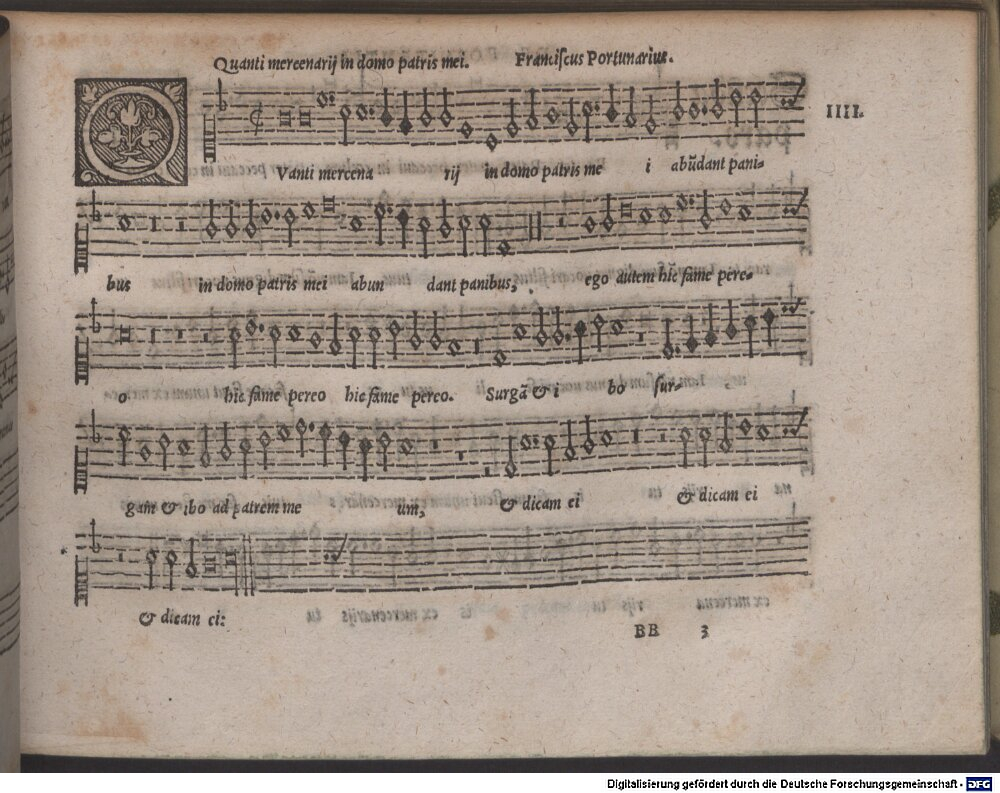 Quanti mercenarij in domo patris mei. Franciscus Portunarius.
IIII.
QVanti mercena rij in domo patris me i abūdant pani-
bus in domo patris mei abun dant panibus, ego autem hic fame pere-
o hic fame pereo hic fame pereo. Surgā & i bo sur-
gam & ibo ad patrem me um, & dicam ei & dicam ei
& dicam ei:
BB 3
Digitalisierung gefördert durch die Deutsche Forschungsgemeinschaft - DFG